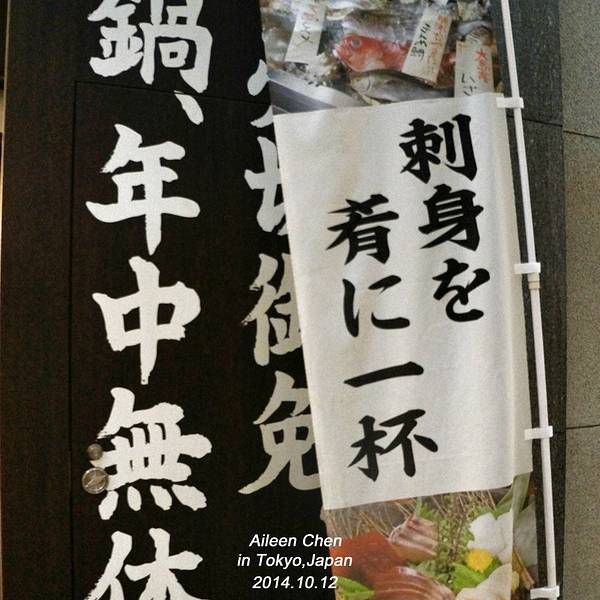 刺身を
肴に一杯
切御免
鍋、年中無休
Aileen Chen
in Tokyo,Japan
2014.10.12